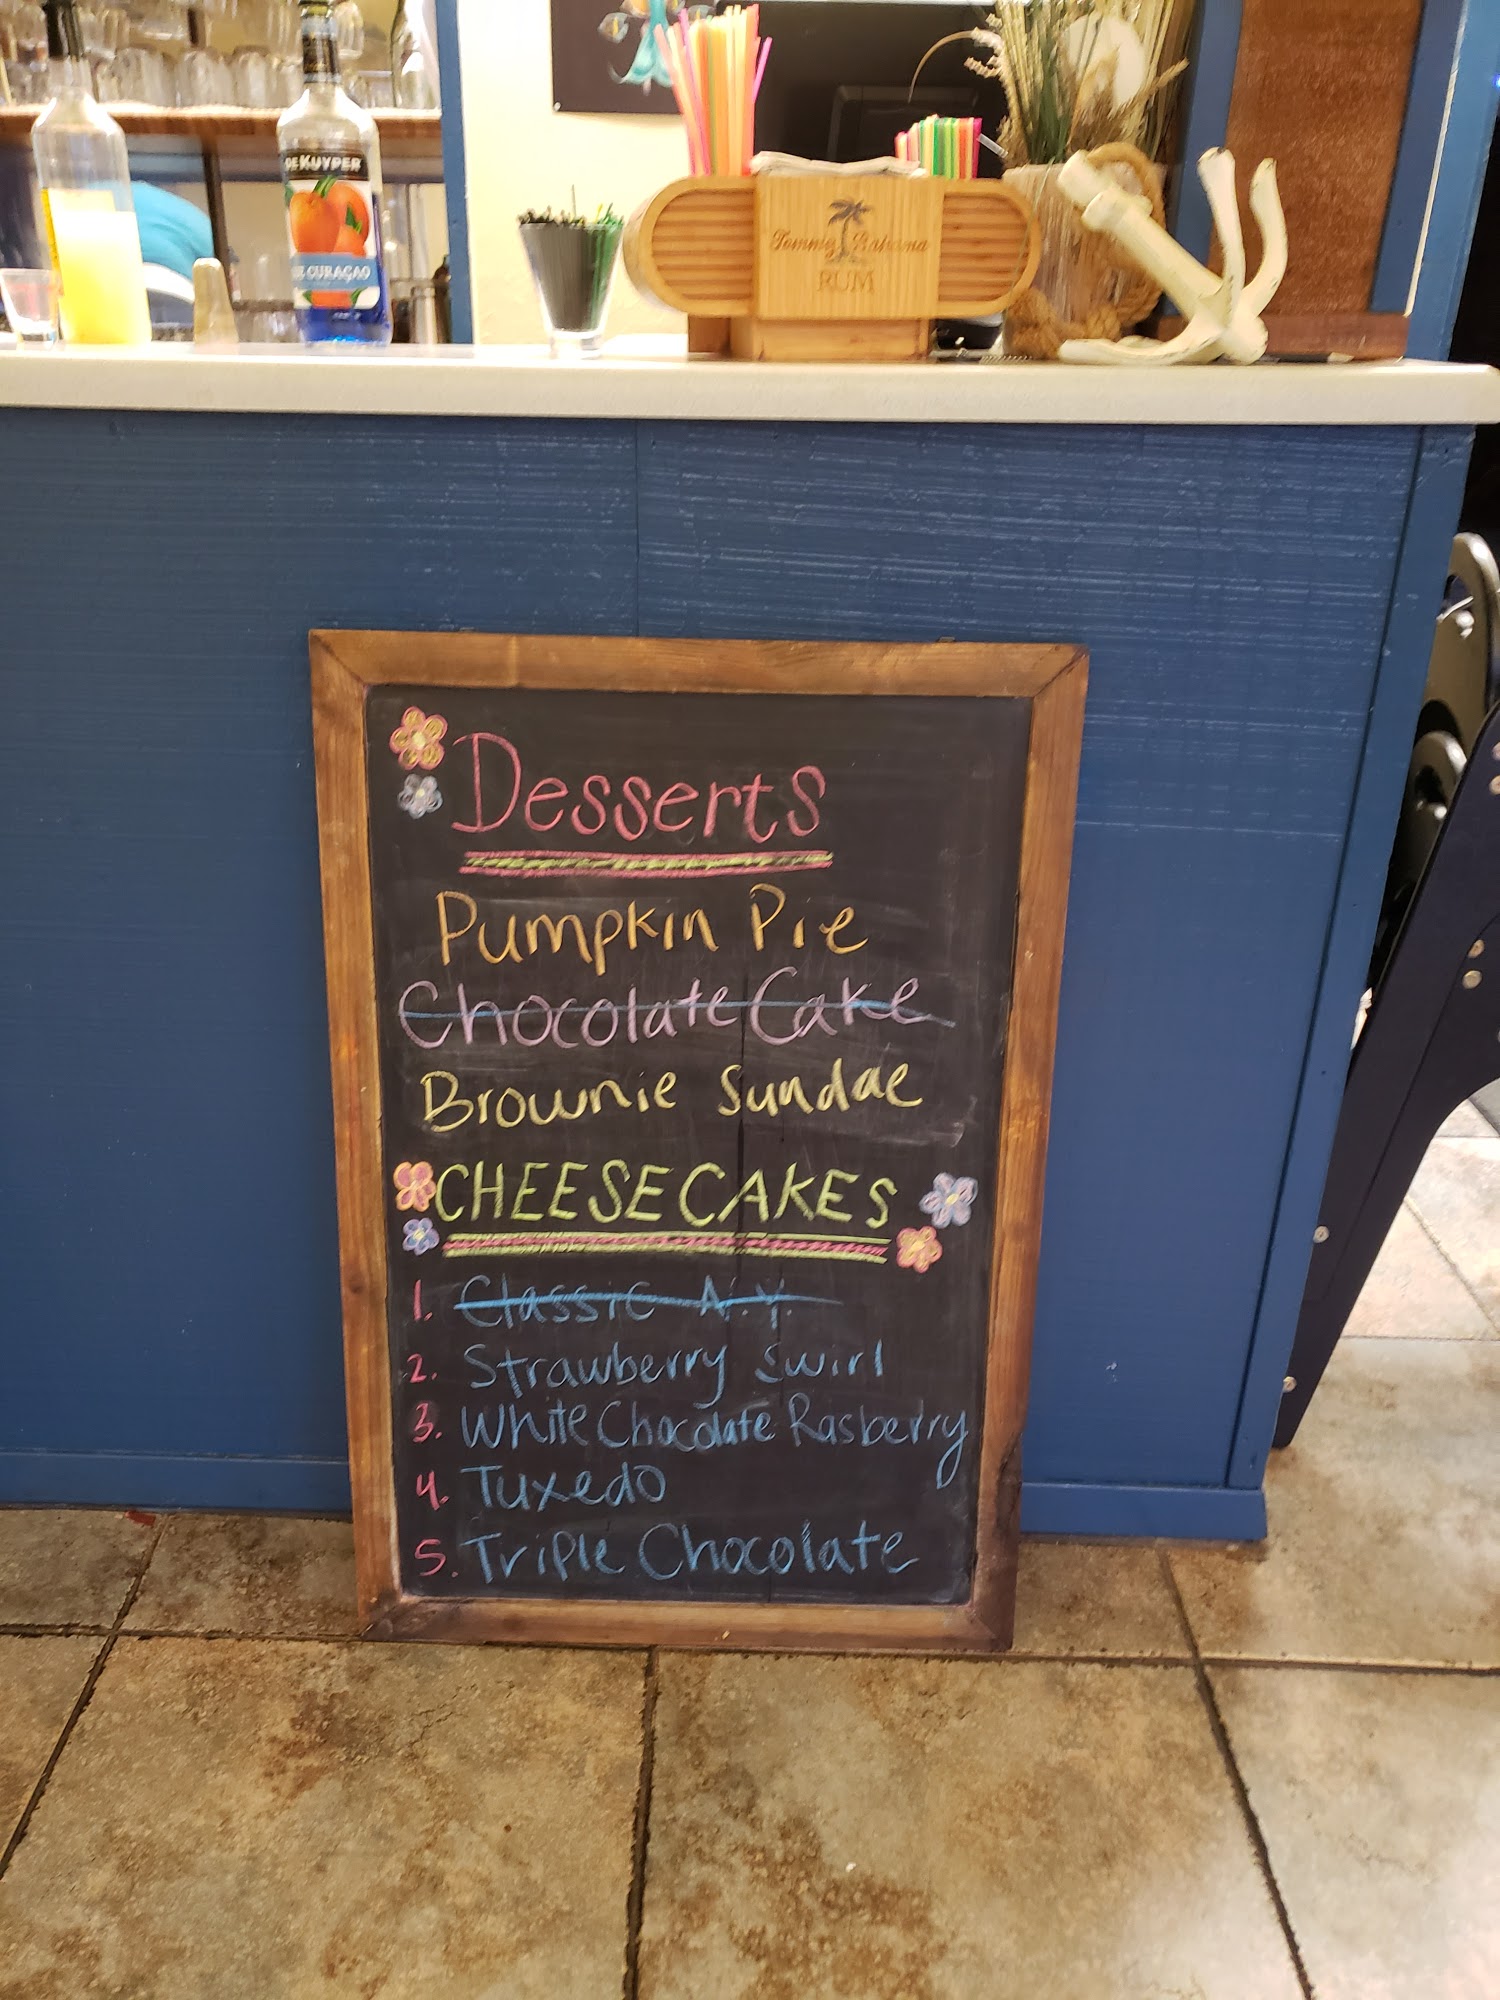 DEKUYPER
CURAÇAO
Tommy Bahama
RUM
Desserts
Pumpkin Pie
Chocolate Cake
Brownie Sundae
CHEESECAKES
1. Classic N.Y.
2. Strawberry Swirl
3. White Chocolate Rasberry
4. Tuxedo
5. Triple Chocolate